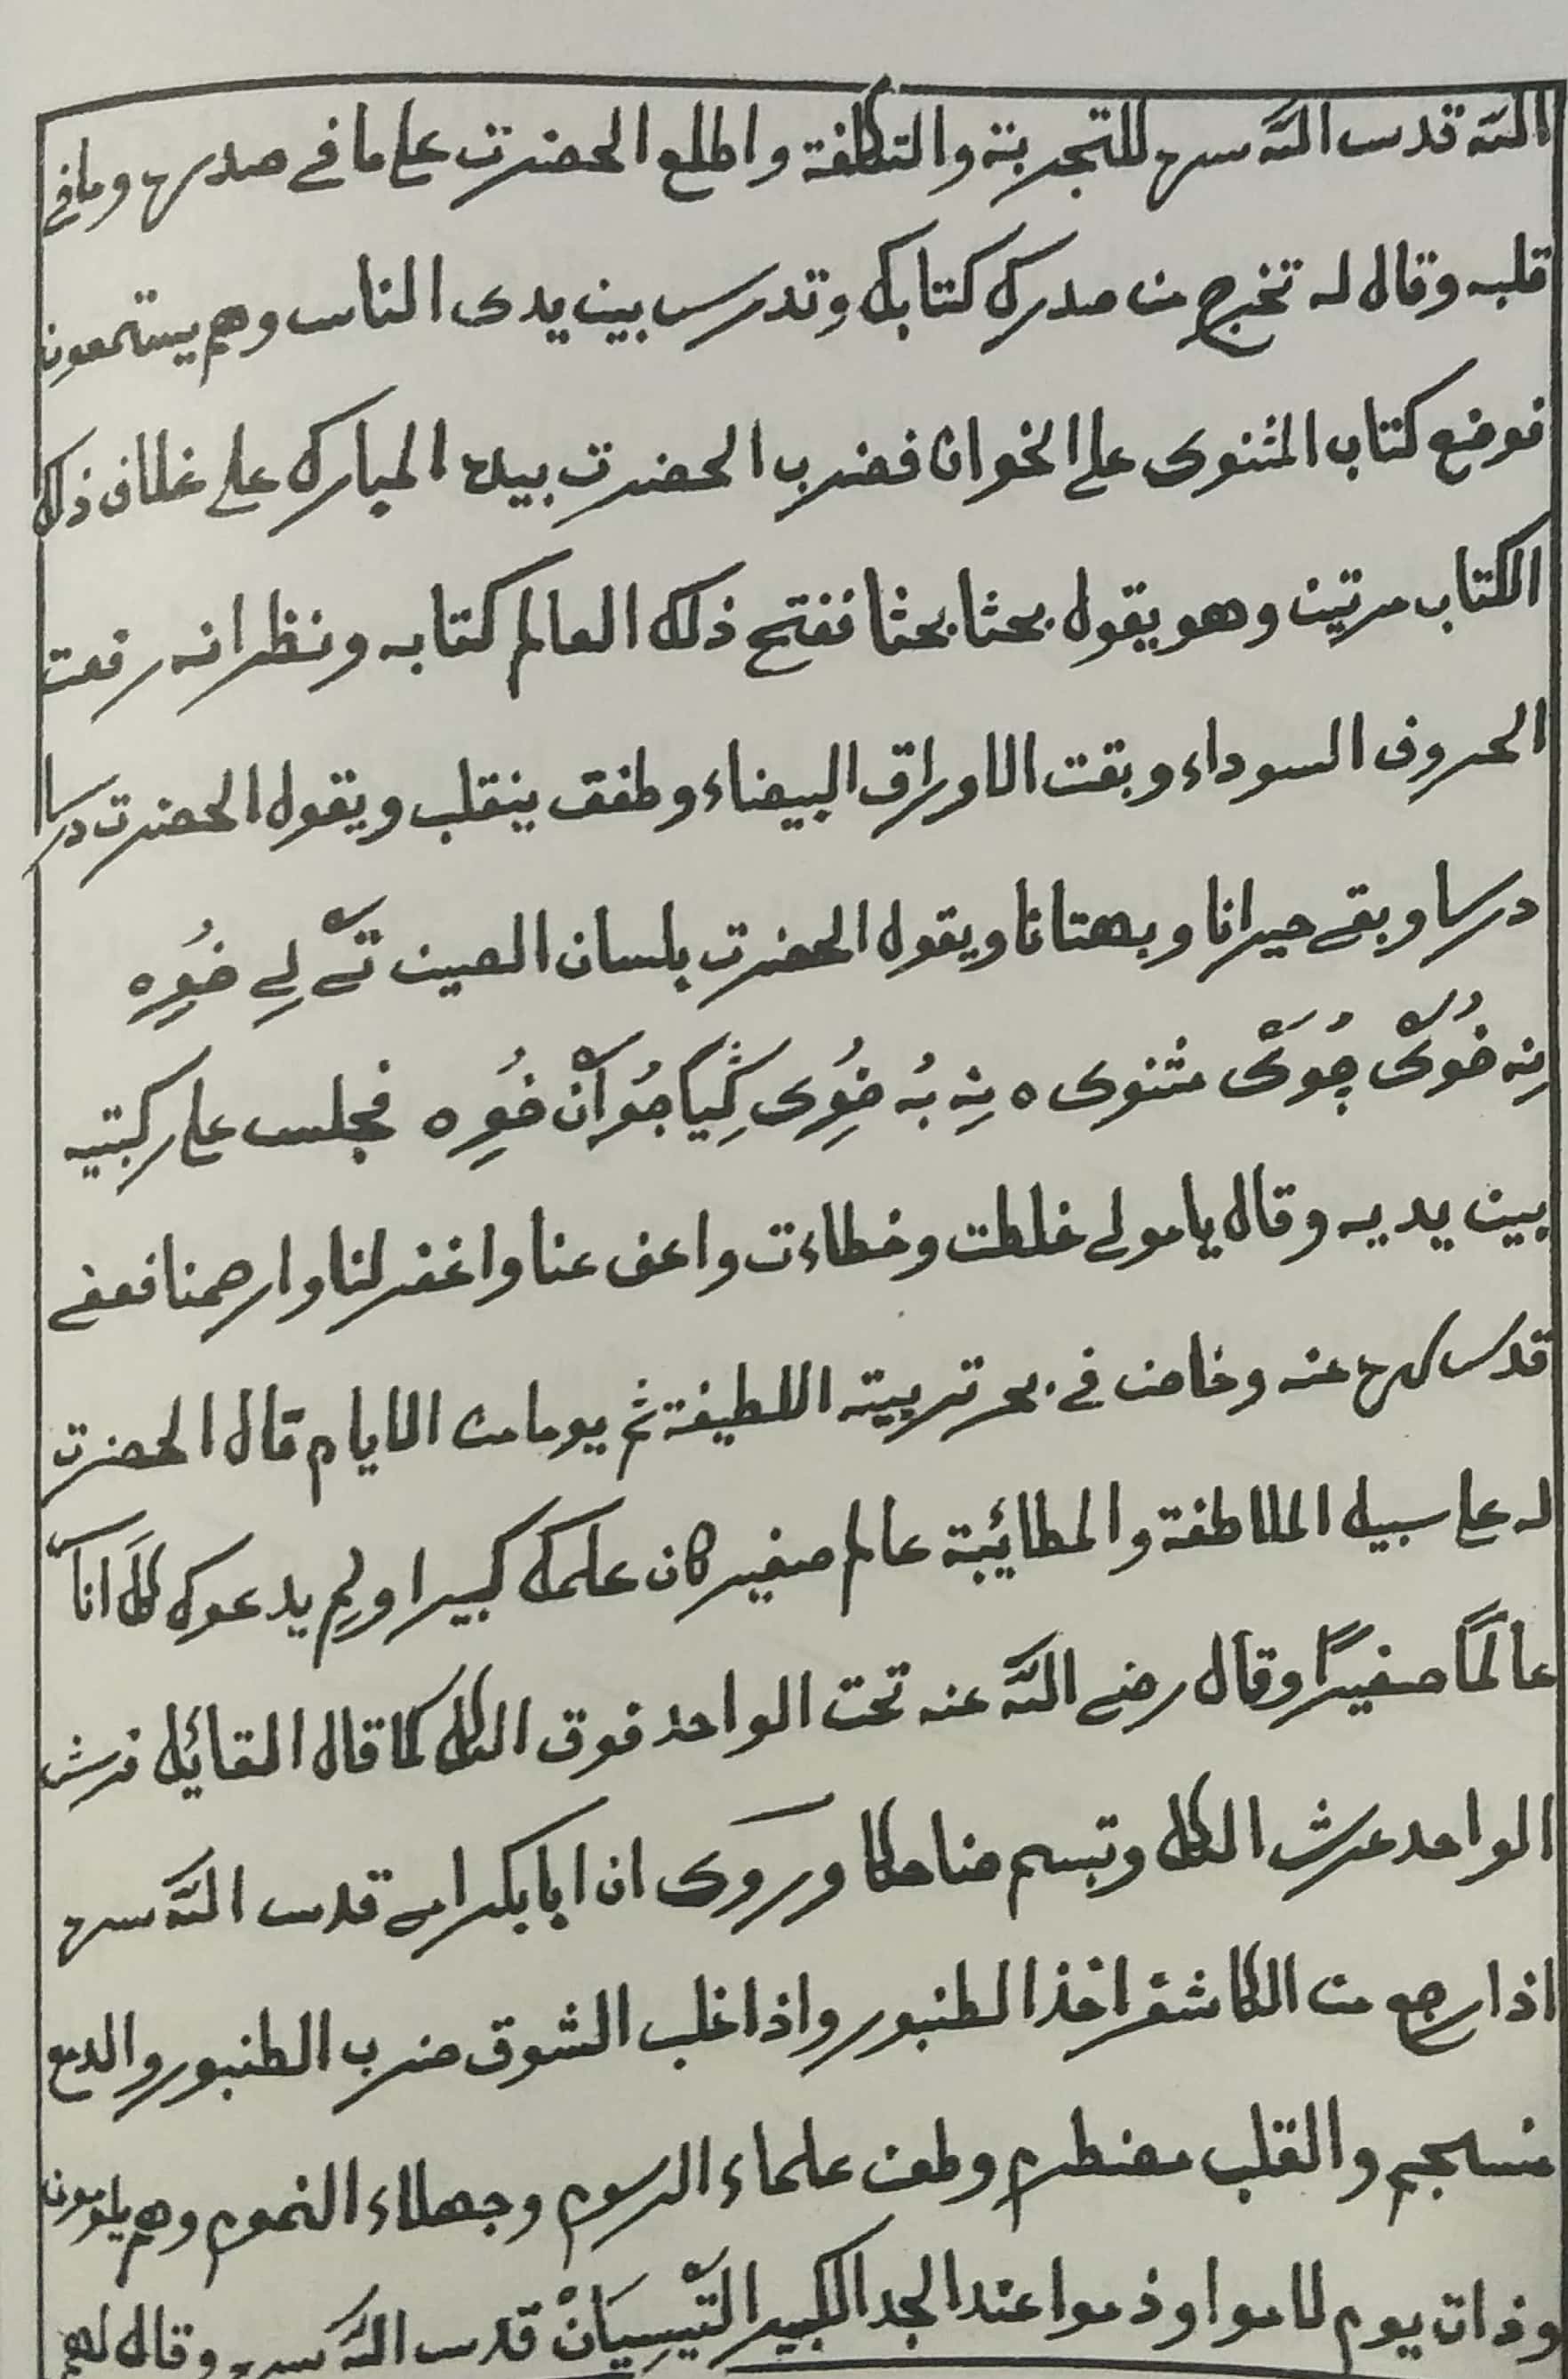 الله قدس الله سره للتجربة والتكلفة واطلع الحضرت على ما في صدره وما في
قلبه وقال له تخرج من صدرك كتابك وتدرس بين يدى الناس وهم يستمعون
فوضع كتاب المثنوى على الخوان فضرب الحضرت بيده المبارك على غلاف ذلك
الكتاب مرتين وهو يقول بحثا بحثا ففتح ذلك العالم كتابه ونظر انه رفعت
الحروف السوداء وبقت الاوراق البيضاء وطفق ينقلب ويقول الحضرت درسا
درسا وبقى حيرانا وبهتانا ويقول الحضرت بلسان الصين تَّے لِے خُوِه
نِه خُوىْ جُوَىْ مثنوى ه نِه بُه خُوِى كِيَا جُوْاَنْ خُوِه فجلس على ركبتيه
بين يديه وقال يا مولى غلطت وخطاءت واعف عنا واغفر لنا وارحمنا فعفى
قدس سره عنه وخاض في بحر تربيته اللطيفة ثم يوما من الايام قال الحضرت
له على سبيل الملاطفة والمطائبة عالم صغير كان علمك كبيرا ولِم يدعوك كلَّ اناَ
عالمًا صغيرًا وقال رضى الله عنه تحت الواحد فوق الكل كما قال القائل فرش
الواحد عرش الكل وتبسم ضاحكا وروى ان ابا بكرامى قدس الله سره
اذا رجع من الكاشغر اخذ الطنبور واذا غلب الشوق ضرب الطنبور والدمع
منسجم والقلب مضطرم وطعن علماء الرسوم وجهلاء النجوم وهم يلومون
وذات يوم لاموا وذموا عند الجد الكبير التَّيسِيَانْ قدس الله سره وقال لهم